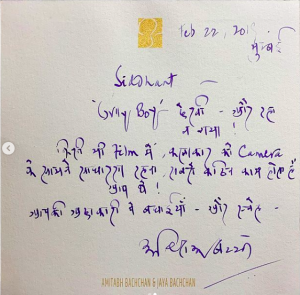 Feb 22, 201
मुंबई
Siddhant -
'Gully Boy' देखी - और रहा
न गया !
किसी भी Film में, कलाकार को Camera
के सामने साधारण रहना, सबसे कठिन काम होता है
आप की अदाकारी में बधाईयाँ - और स्नेह -
अमिताभ बच्चन
AMITABH BACHCHAN & JAYA BACHCHAN